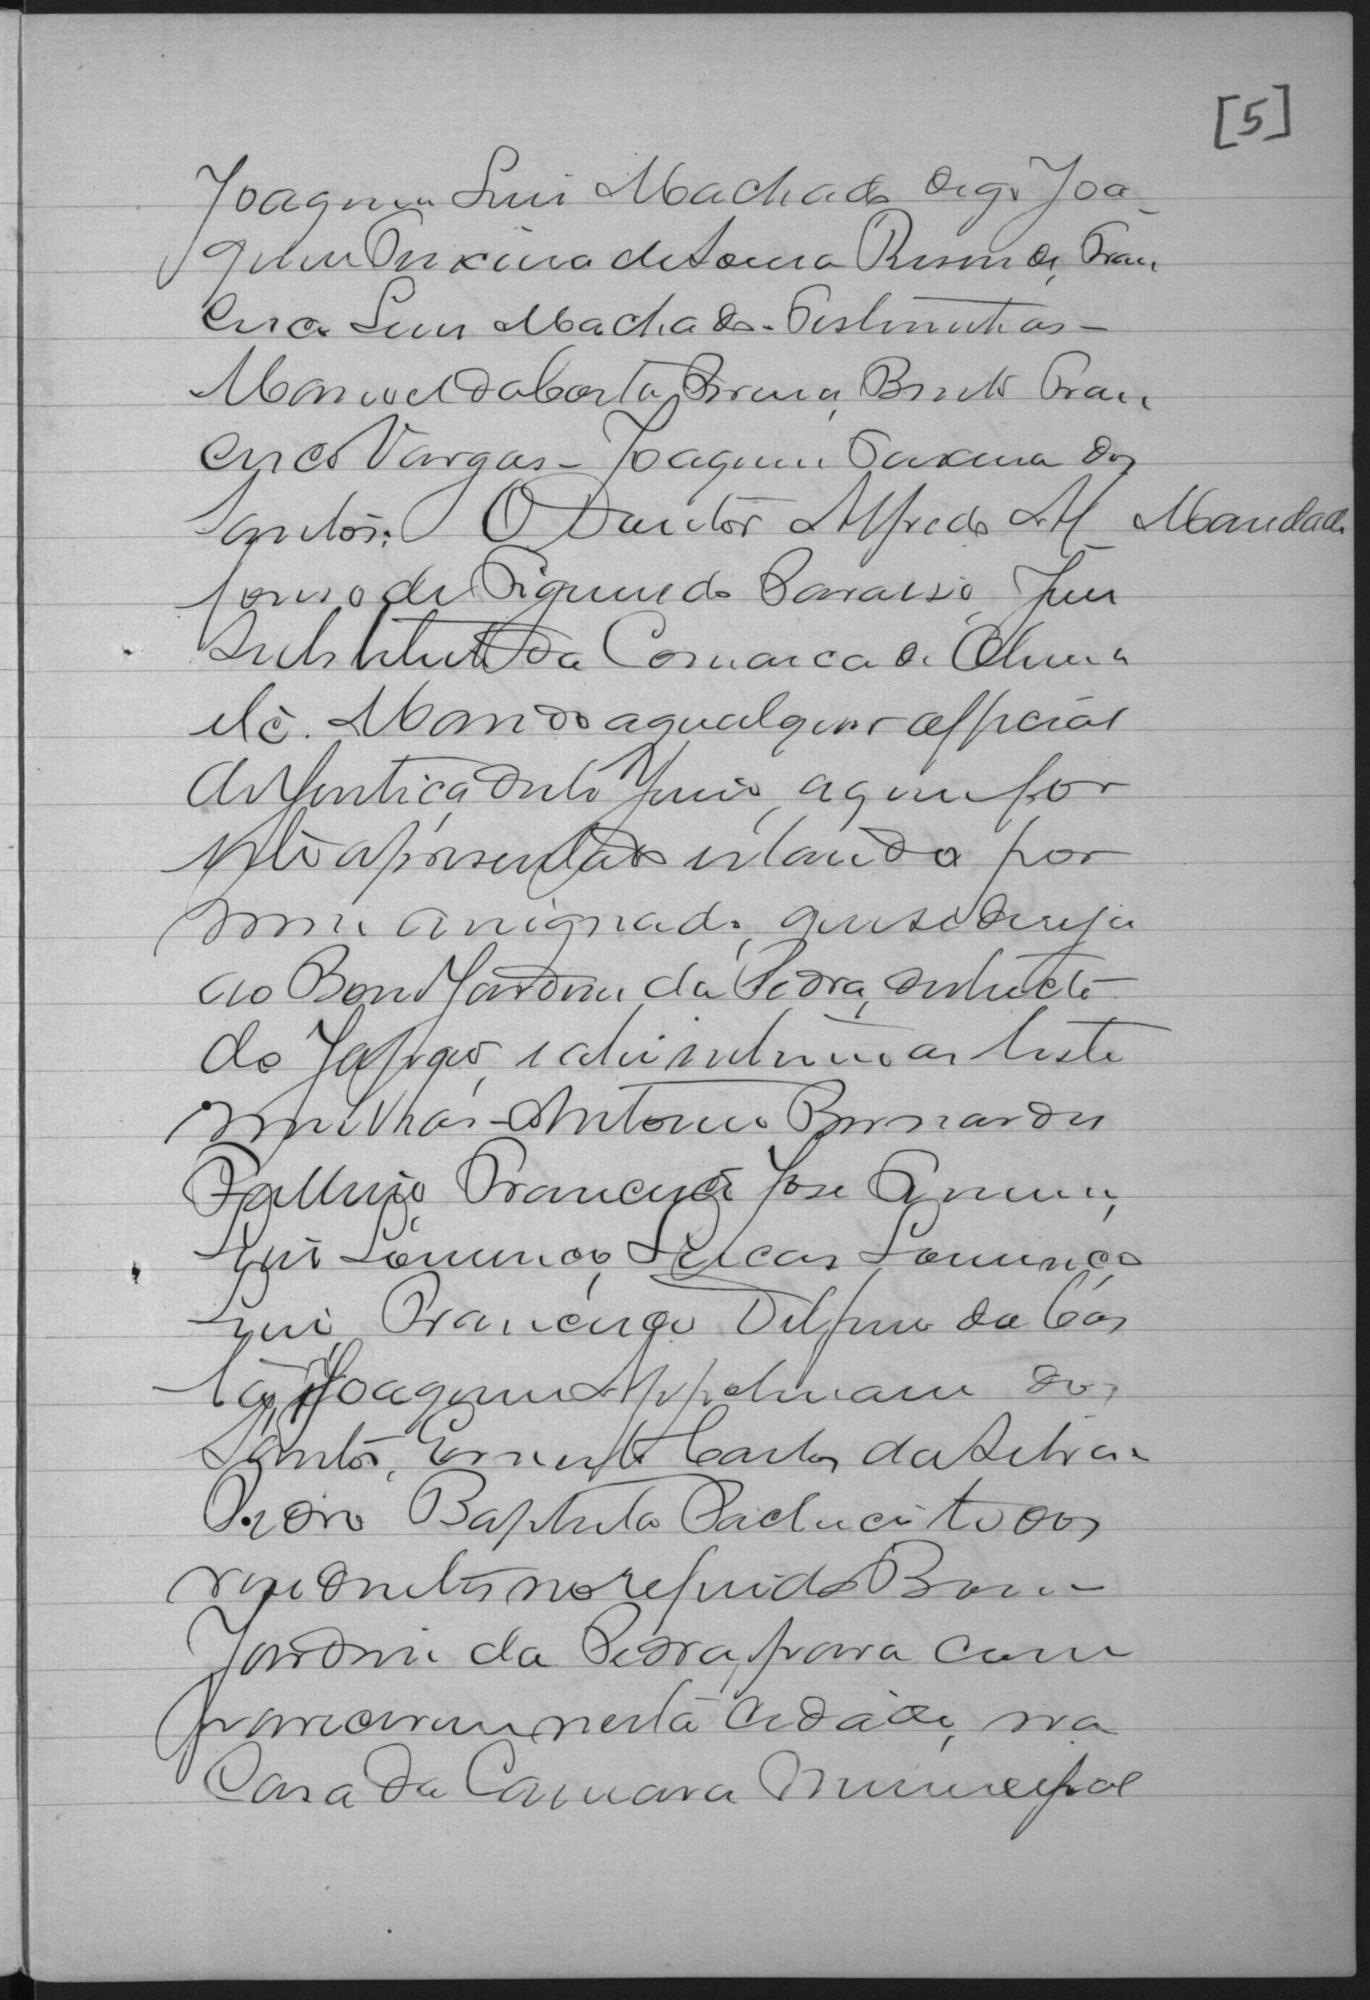 [5]
Joaquim Luis Machado digo Joa
quim Teixeira de Sousa Resende, Fran
cisco Luis Machado. Testimunhas -
Manoel da Costa Pereira, Bento Fran
cisco Vargas - Joaquim Teixeira dos
Santos. O Doutor Alfredo Af Mandado
fonso de Figueredo Paraiso, Juiz
Substituto da Comarca de
etc. Mando a qualquer official
de Justiça deste Juizo, a quem for
este apresentado estando por
mim assignado, que se dirija
ao Bom Jardim da Pedra, destricto
do Japão, e ahi intime as teste
munhas - Antonio Bernardes
Francisco José
Luis Lourenço, Lucas Lourenço
Luis, Francisco Delfino da Cos
ta, Joaquim dos
Santos, Ernesto Carlos da Silva e
Pedro Baptista todos
residentes no referido Bom
Jardim da Pedra, para com
parecerem nesta cidade, na
Casa da Camara Municipal